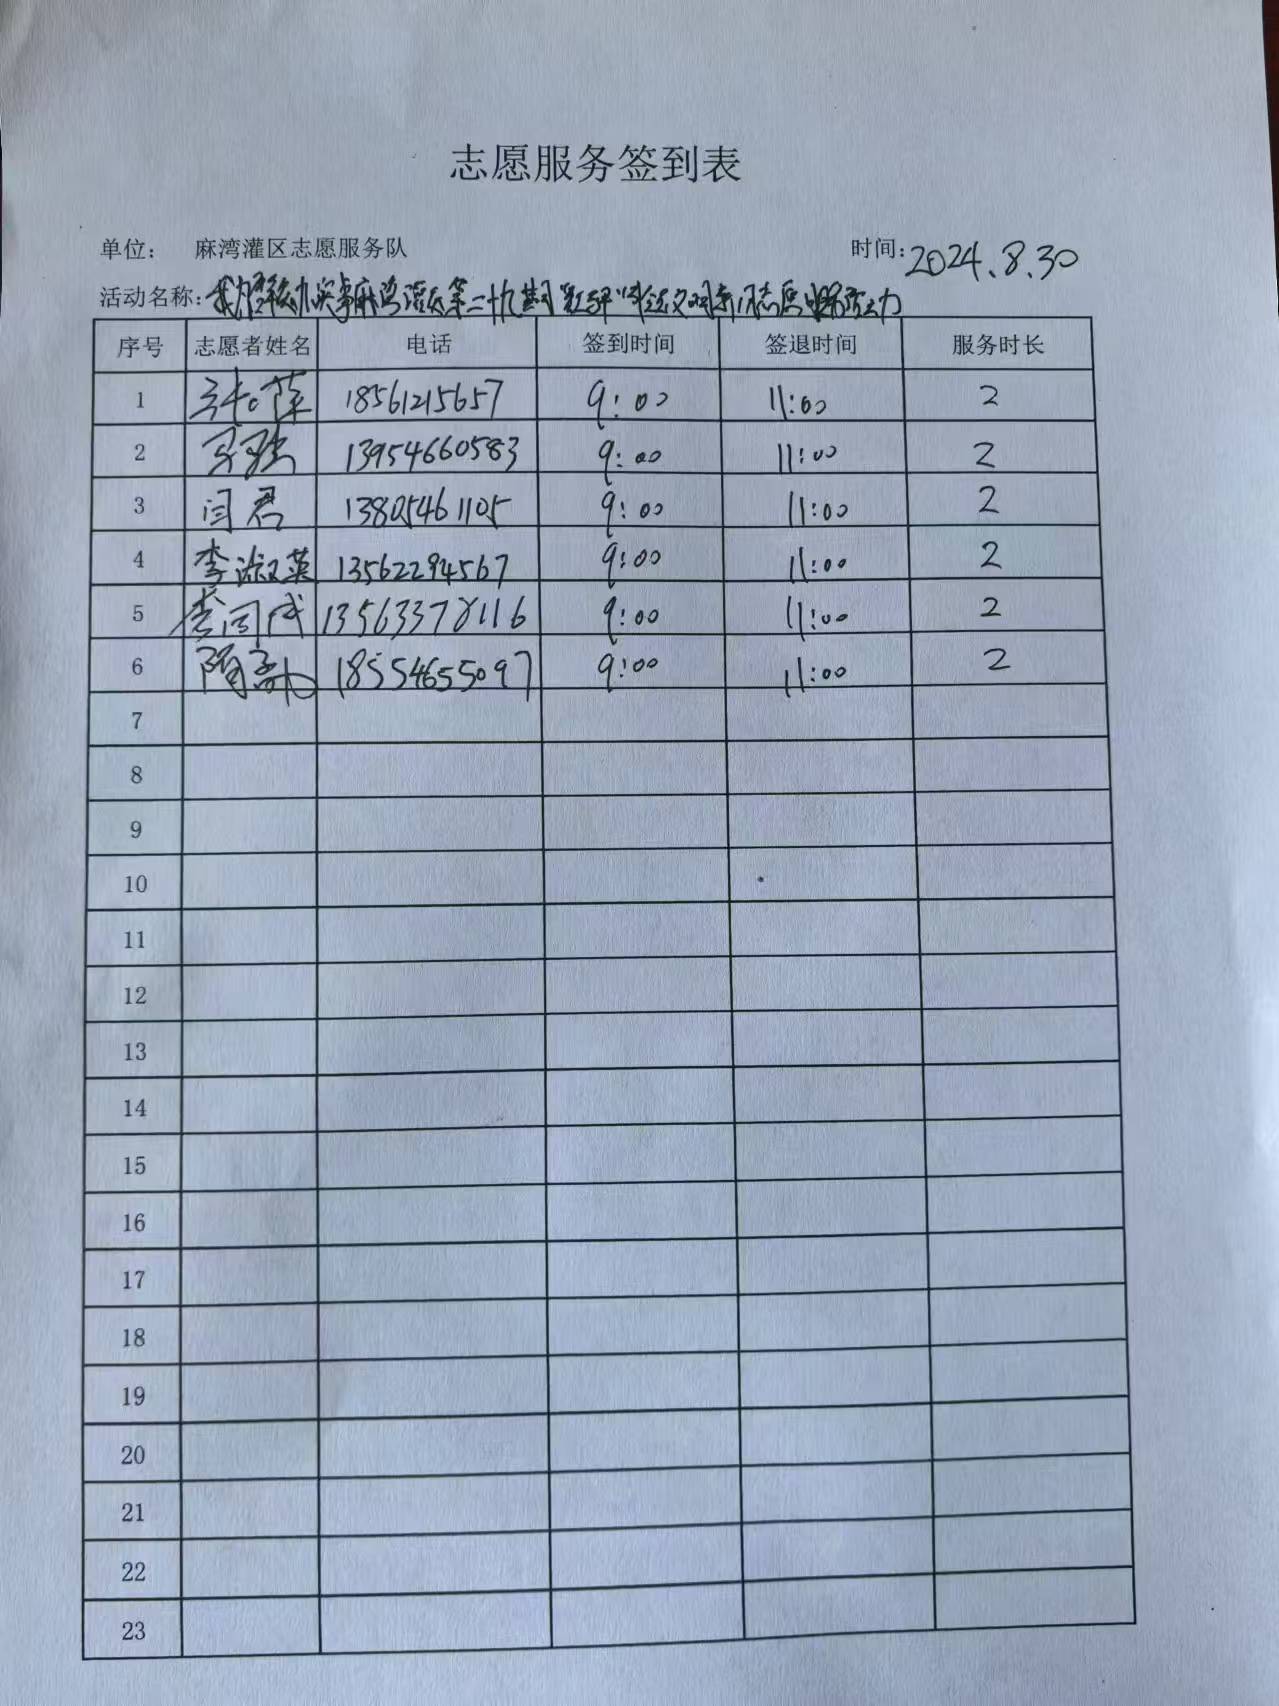 志愿服务签到表
单位： 麻湾灌区志愿服务队 时间：2024.8.30
活动名称：我为群众办实事麻湾灌区第二十九期
序号 志愿者姓名 电话 签到时间 签退时间 服务时长
1 18561215657 9:00 11:00 2
2 13954660583 9:00 11:00 2
3 闫君 13805461105 9:00 11:00 2
4 李淑英 13562294567 9:00 11:00 2
5 李同成 13563378116 9:00 11:00 2
6 隋 18554655097 9:00 11:00 2
7
8
9
10
11
12
13
14
15
16
17
18
19
20
21
22
23